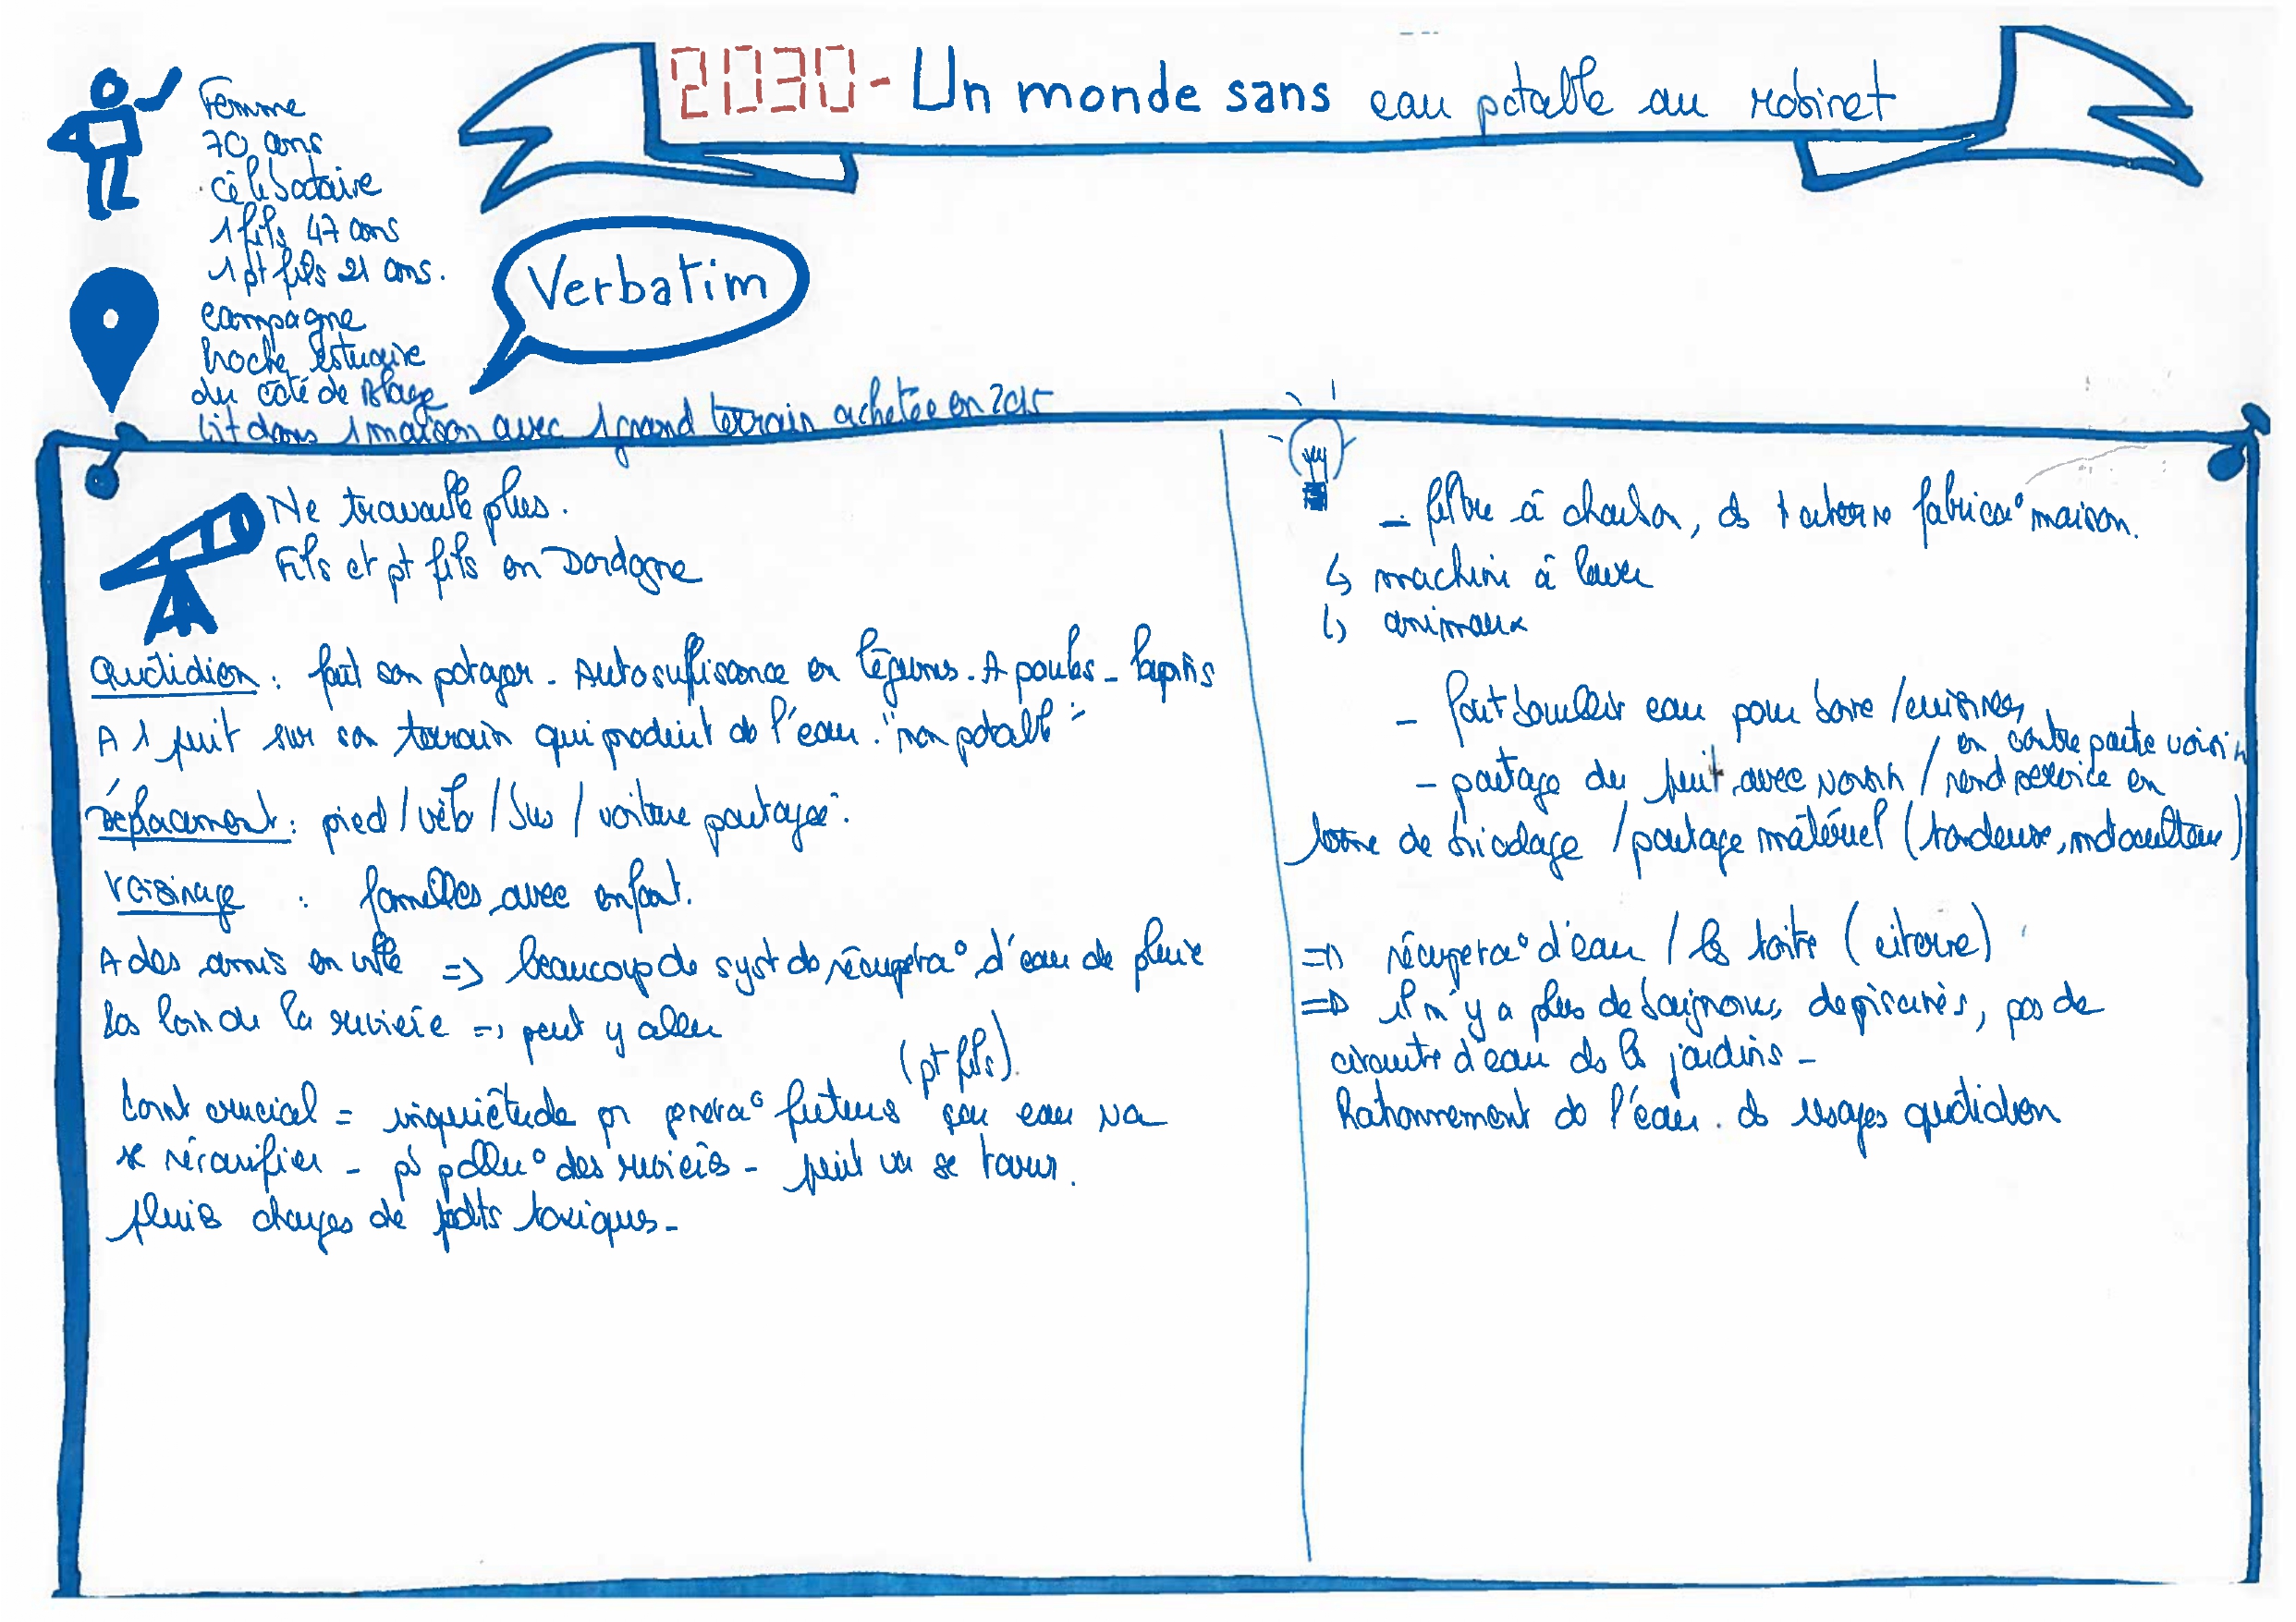 2030 - Un monde sans eau potable au robinet
Femme
70 ans
célibataire
1 fils 47 ans
1 pt fils 21 ans.
campagne
Proche estuaire
du côté de Blaye
Vit dans 1 maison avec 1 grand terrain achetée en 2015
Verbatim
Ne travaille plus.
Fils et pt fils en Dordogne
Quotidien : fait son potager - Autosuffisance en légumes. A poules - lapins
A 1 puit sur son terrain qui produit de l'eau "non potable"
Déplacement : pied / vélo / bus / voiture partagée.
Voisinage : familles avec enfant.
A des amis en ville => beaucoup de syst de récupera° d'eau de pluie
Pas loin de la rivière => peut y aller
(pt fils).
Point crucial = inquiétude pr genera° future que eau va
se raréfier - pb pollu° des rivières - puit va se tarir.
pluie chargés de pdts toxiques -
- filtre à charbon, ds citerne fabrica° maison.
↳ machine à laver
↳ animaux
- fait bouillir eau pour boire / cuisiner
- partage du puit avec voisin / en contre partie voisin
rend service en
terme de bricolage / partage matériel (tondeuse, motoculteur)
=> récupera° d'eau / les toits (citerne)
=> il n'y a plus de baignoires, de piscines, pas de
circuits d'eau ds les jardins -
Rationnement de l'eau. ds usages quotidien